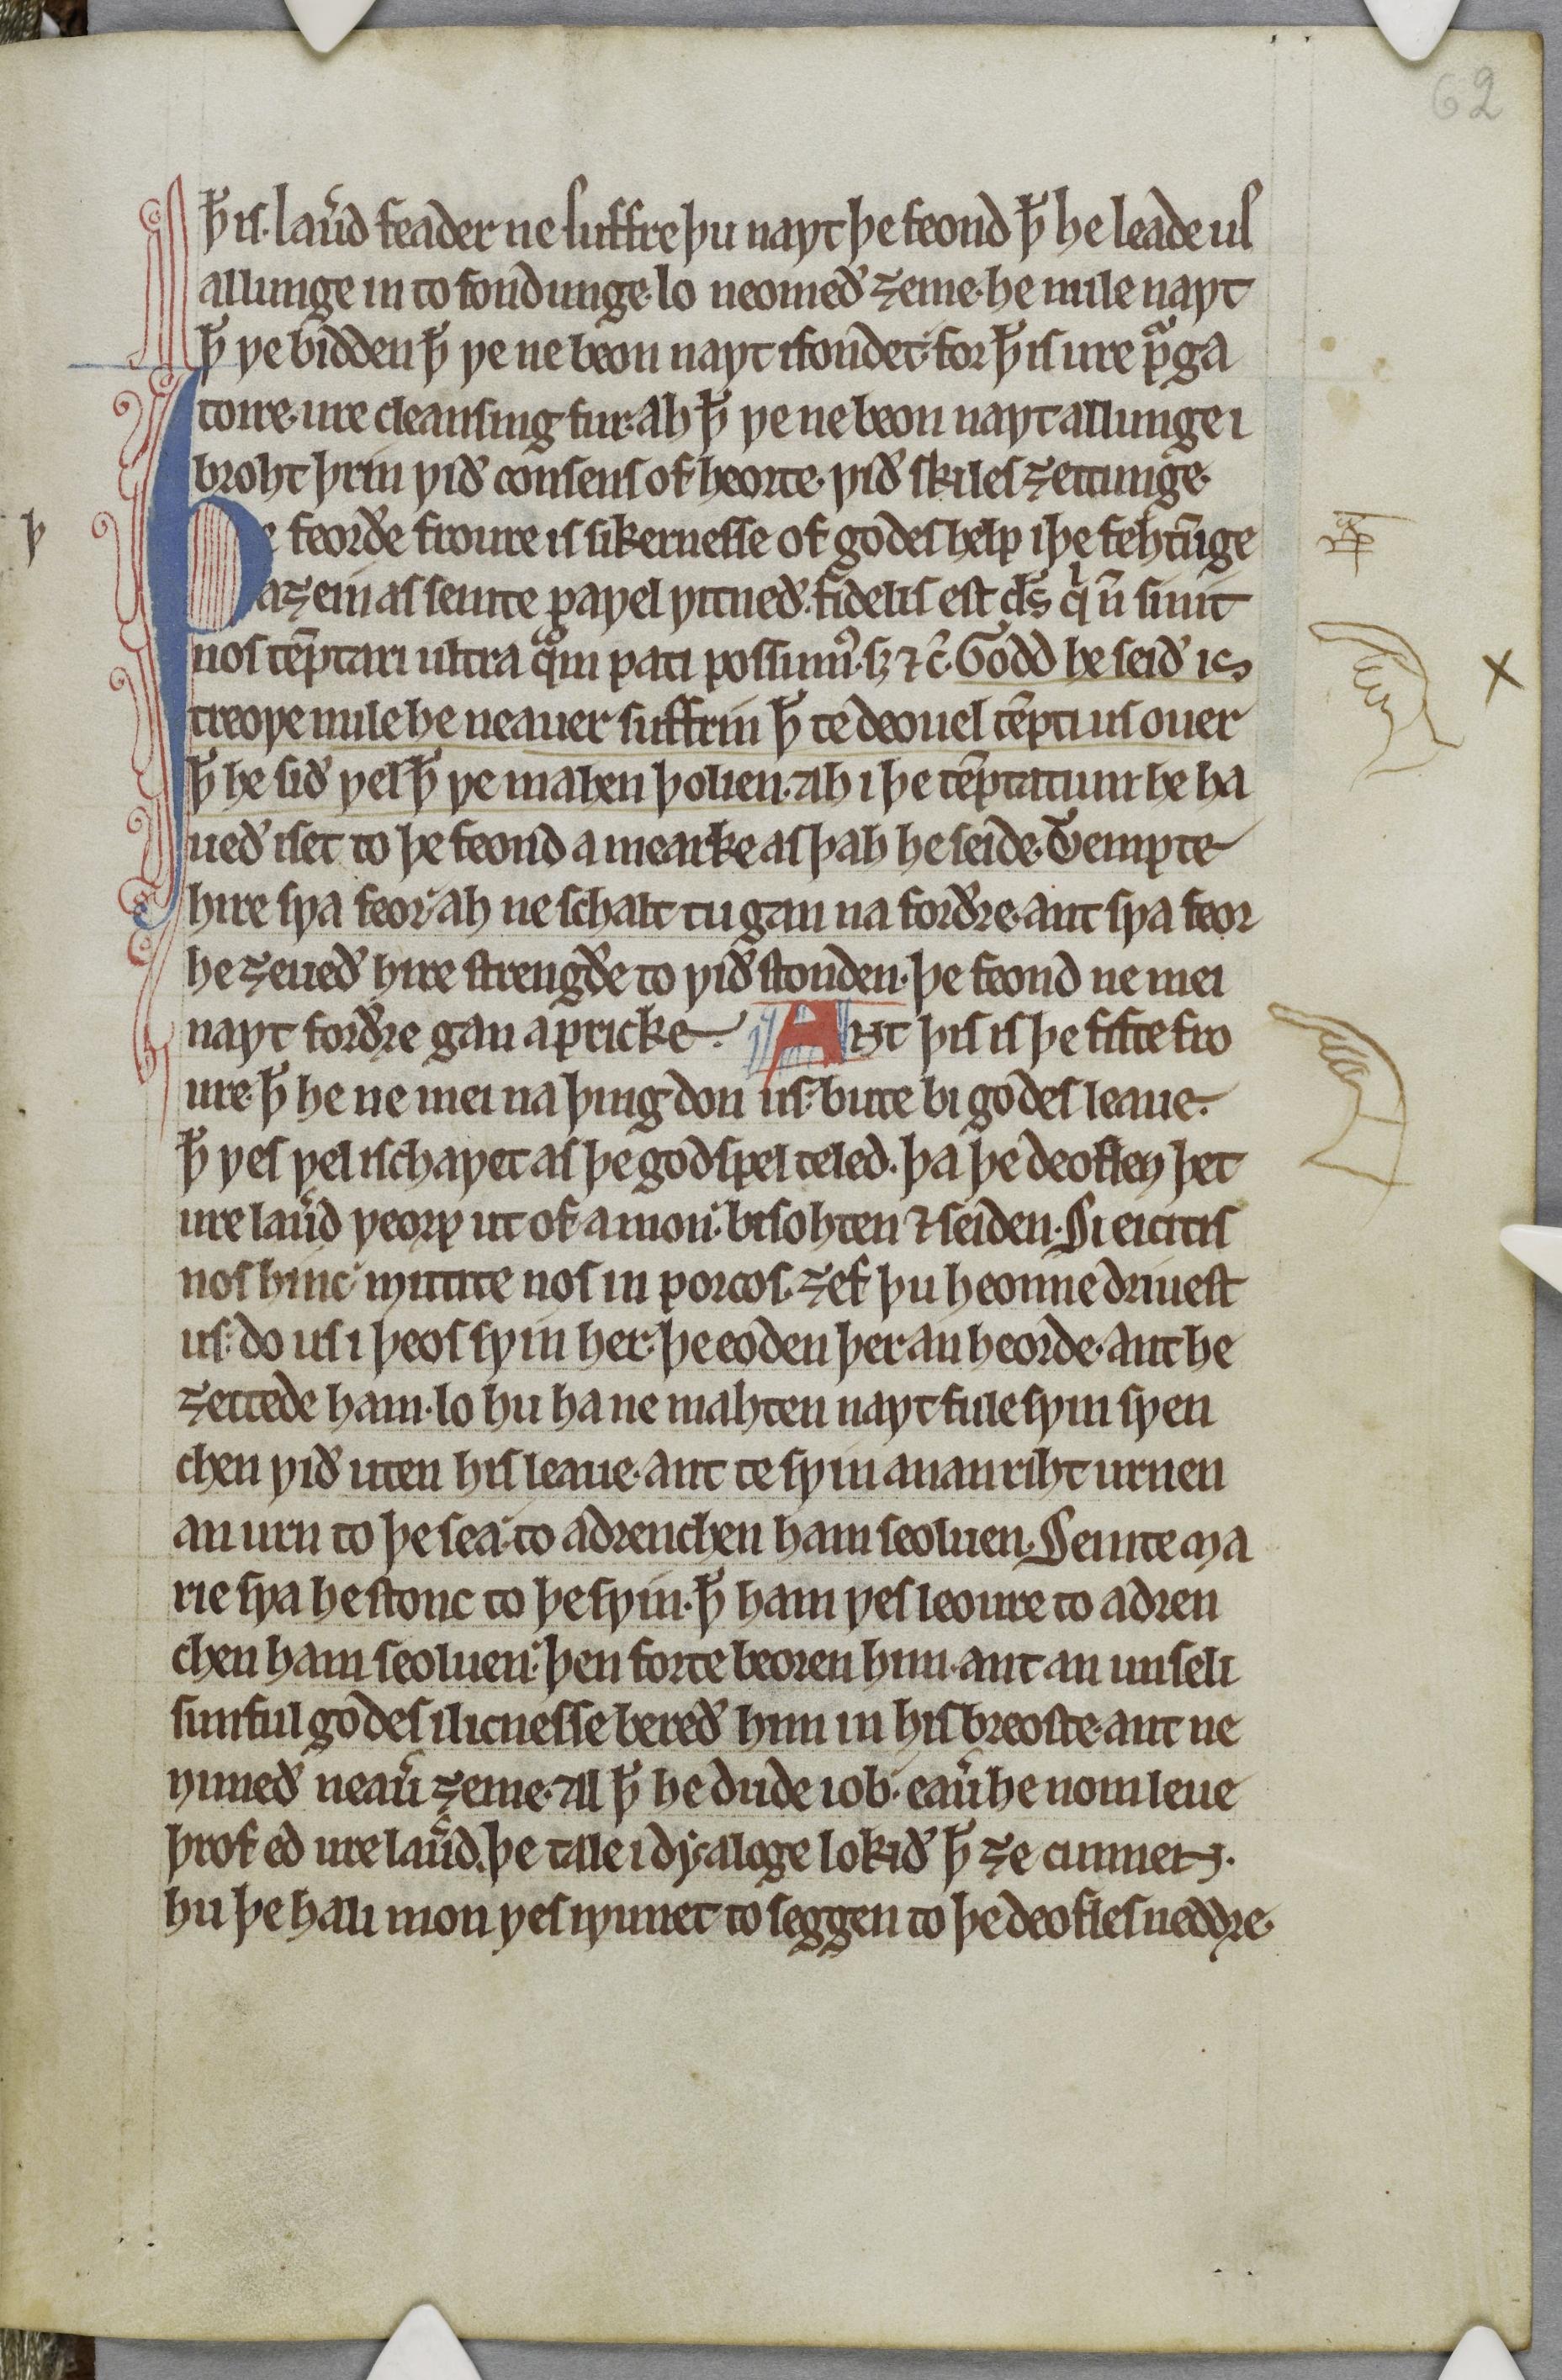 62
ꝥ is. lau͛d feader ne suffre þu naƿt þe feond ꝥ he leade us
allunge in to fondunge. lo neomeð ȝeme. he nule naƿt
ꝥ ƿe bidden ꝥ ƿe ne beon naƿt ifondet. for ꝥ is ure pᵃga
toire. ure cleansing fur. ah ꝥ ƿe ne beon naƿt allunge i
broht þrin ƿið consens of heorte. ƿið skiles ȝettunge.
þ
Þe feorðe froure is sikernesse of godes help i þe fehtu̅ge
aȝein as seinte paƿel ƿitneð. fidelis est d̅s qⁱ n̅ sinit
nos te̅ptari ultra qᵃm pati possimꝰ. sꝫ ⁊ c̅. Godd he seið is
treoƿe nule he neauer suffrin ꝥ te deouel te̅pti us ouer
ꝥ he sið ƿel ꝥ ƿe mahen þolien. ah i þe te̅ptatiun he ha
ueð iset to þe feond a mearke as þah he seide. Tempte
hire sƿa feor. ah ne schalt tu gan na forðre. ant sƿa feor
he ȝeueð hire strengðe to ƿið stonden. þe feond ne mei
naƿt forðre gan a pricke. Ant þis is þe fifte fro
ure. ꝥ he ne mei na þing don us. bute bi godes leaue.
ꝥ ƿes ƿel ischaƿet as þe godspel teled. þa þe deoflen þet
ure lau͛d ƿeorp ut of a mon. bisohten ⁊ seiden. Si eicitis
nos hinc. mittite nos in porcos. ȝef þu heonne driuest
us. do us i þeos sƿin her. þe eoden þer an heorde. ant he
ȝettede ham. lo hu ha ne mahten naƿt fule sƿin sƿen
chen ƿið uten his leaue. ant te sƿin anan riht urnen
an urn to þe sea. to adrenchen ham seoluen. Seinte Ma
rie sƿa he stonc to þe sƿin. ꝥ ham ƿes leoure to adren
chen ham seoluen. þen forte beoren him. ant an unseli
sunful godes ilicnesse bereð him in his breoste. ant ne
nimeð neau͛ ȝeme. All ꝥ he dude iob. eau͛ he nom leue
þrof ed ure lau͛d. þe tale i dyaloge lokið ꝥ ȝe cunnen.
hu þe hali mon ƿes iƿunet to seggen to þe deofles neddre.